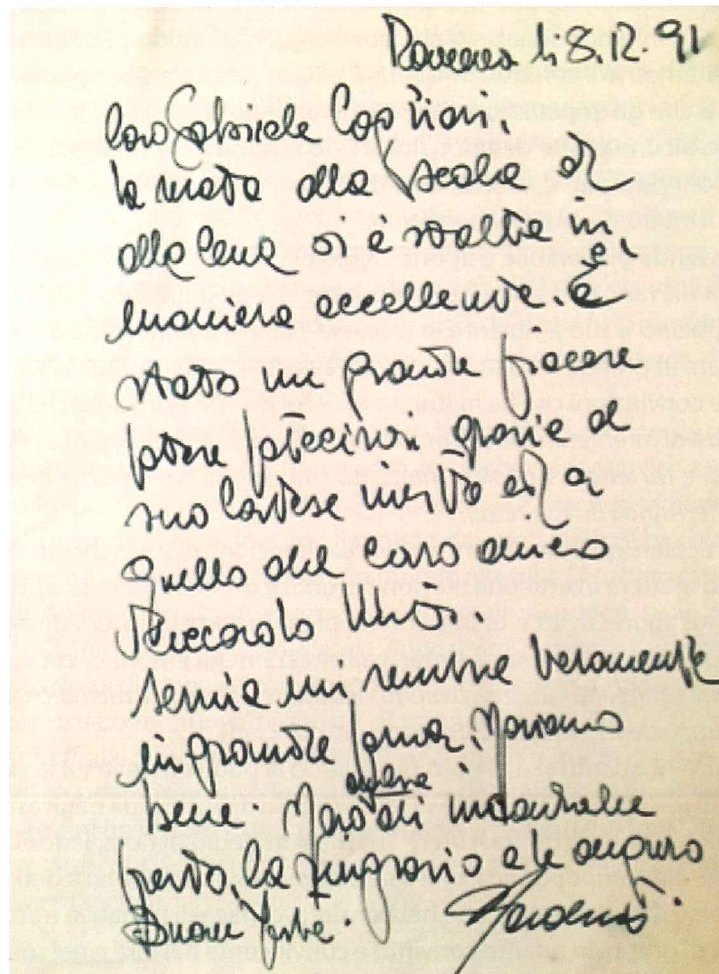 Ravenna li 8.12.91
Caro Gabriele Cagliari,
la serata alla Scala ed
alla cena si è svolta in
maniera eccellente. È
stato un grande piacere
potere parteciparvi grazie al
suo cortese invito ed a
quello del caro amico
Riccardo Muti.
mi sembra veramente
in grande forma.
bene. avere
presto, la ringrazio e le auguro
Buone Feste.